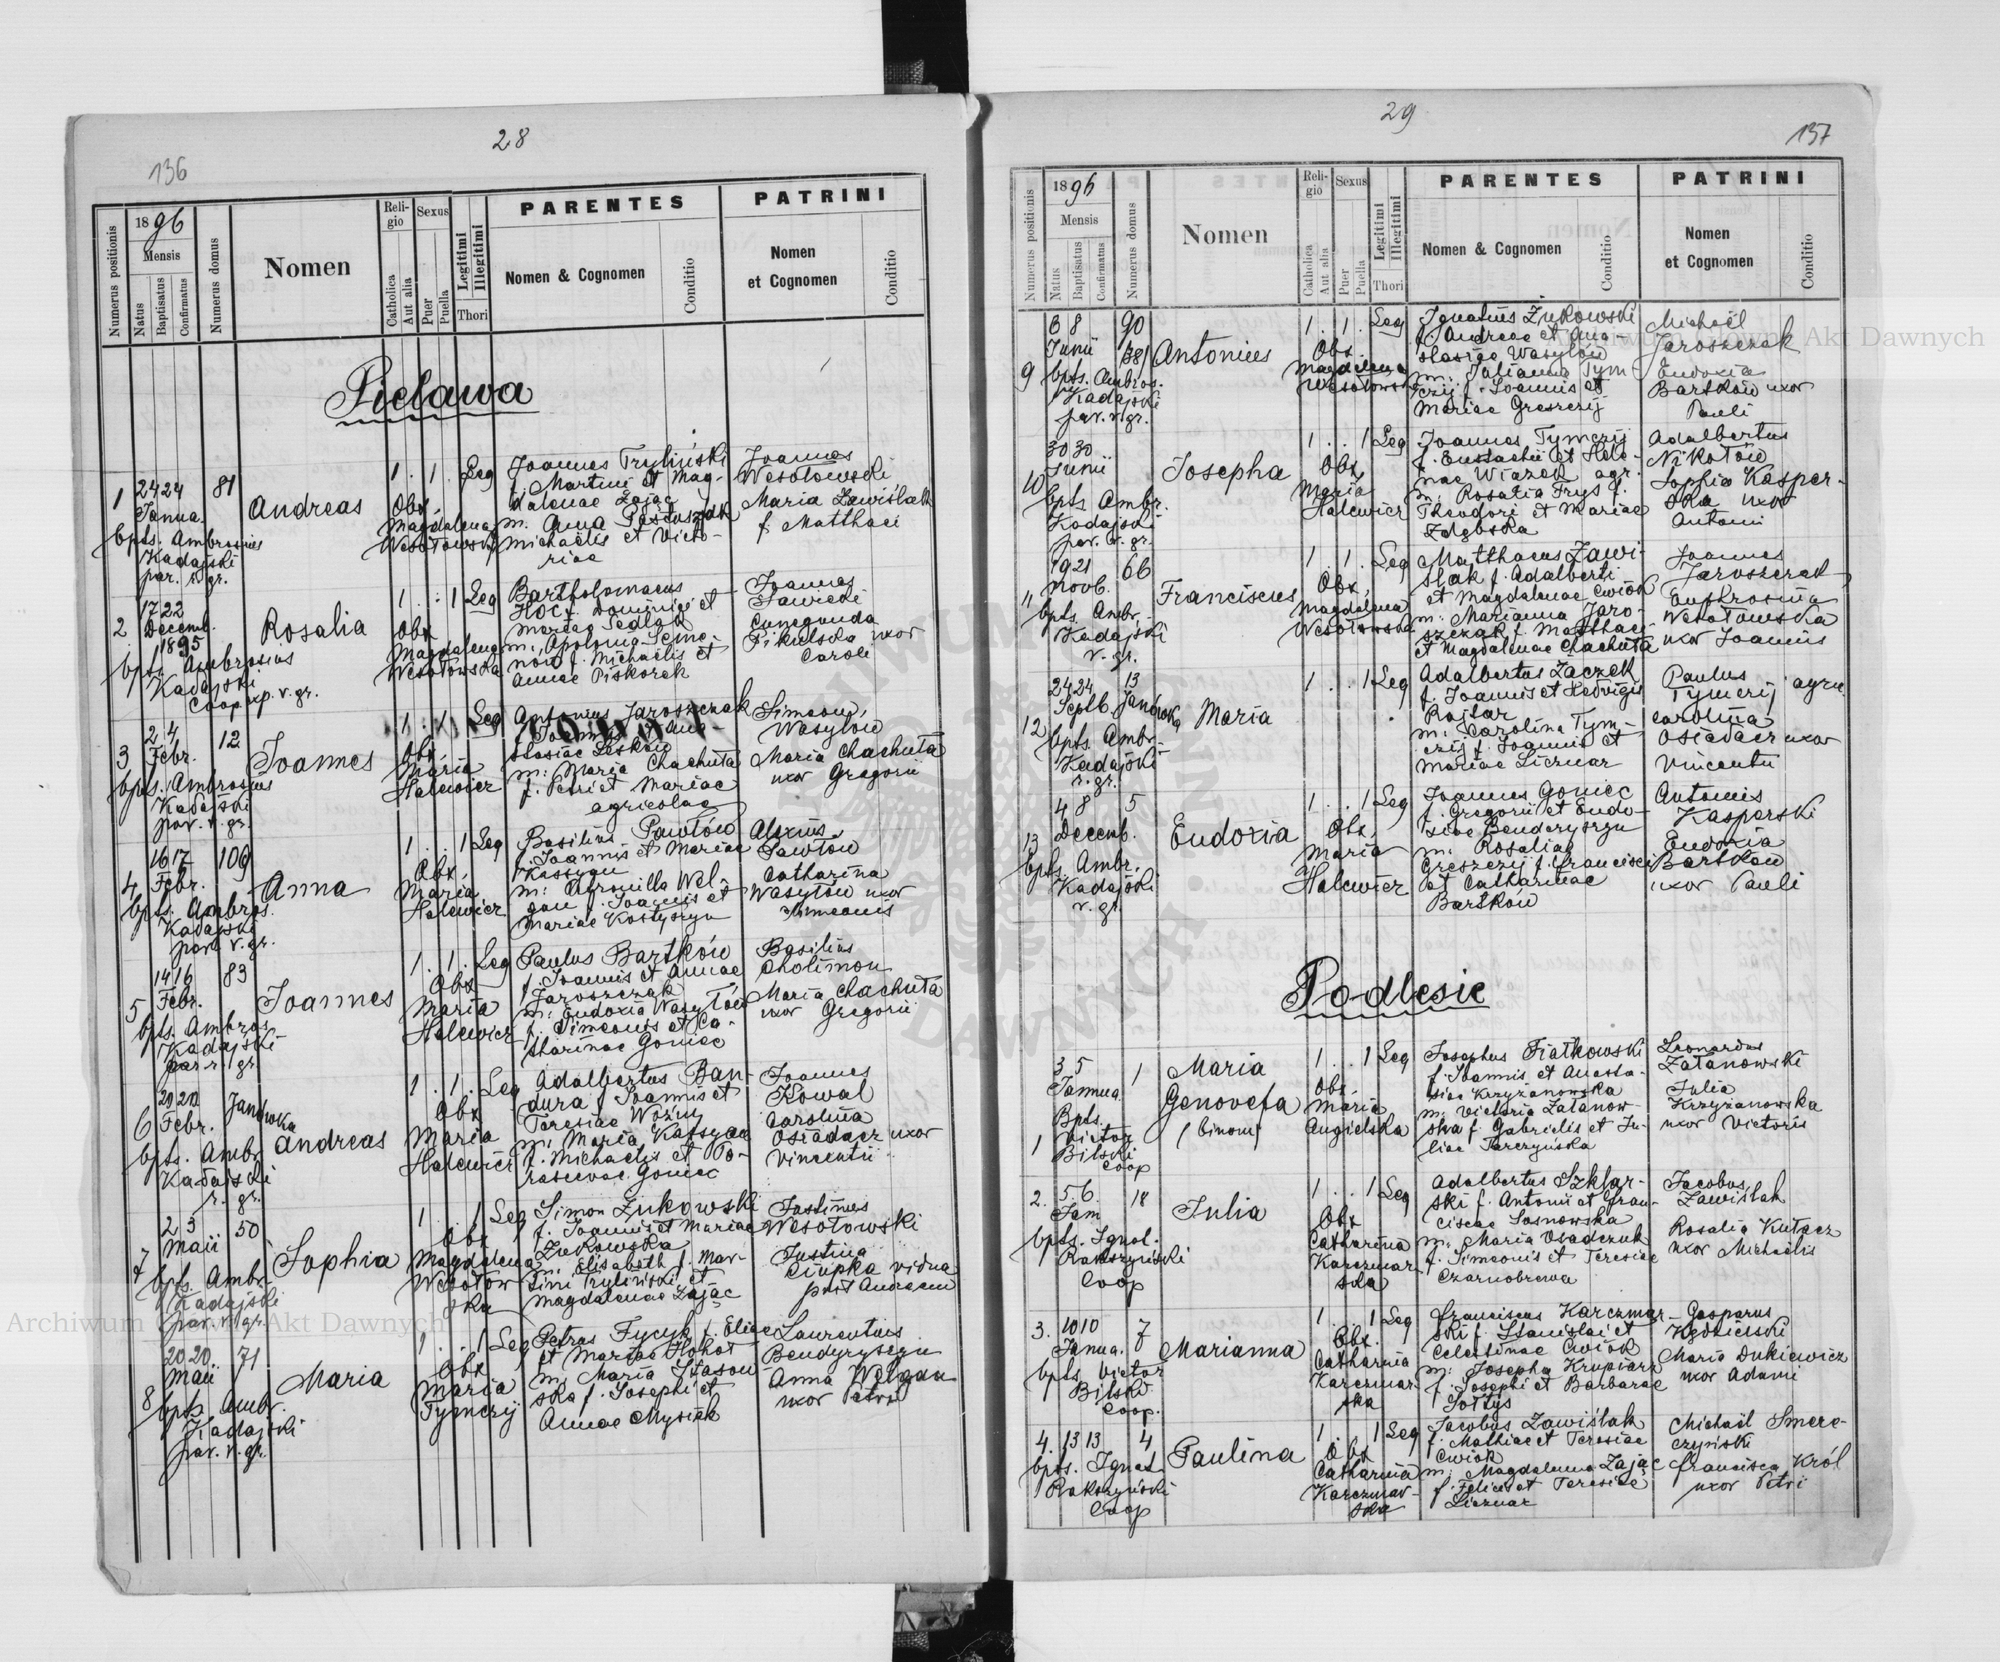 28
136
Numerus positionis
1896
Mensis
Natus
Baptisatus
Confirmatus
Numerus domus
Nomen
Religio
Catholica
Aut alia
Sexus
Puer
Puella
Legitimi
Illegitimi
Thori
PARENTES
Nomen & Cognomen
Conditio
PATRINI
Nomen
et Cognomen
Conditio
Pielawa
1
24 24
Janua.
81
bpts. Ambrosius
Kadajski
par. r. gr.
Andreas
1 . 1 . Leg
Obx.
Magdalena
Wesołowska
Joannes Tryliński
f. Martini et Mag-
dalenae Zając
m. Anna
Michaelis et Victo-
riae
Joannes
Wesołowski
Maria Zawiślak
f. Matthaei
2
17 22
Decemb.
1895
bpts. Ambrosius
Kadajski
Coop. exp. r. gr.
Rosalia
1 . . 1 Leg
Obx
Magdalena
Wesołowska
Bartholomaeus
f. Dominici et
Mariae
m. Apolonia
f. Michaelis et
Annae Piskorek
Joannes
Sawicki
Cunegunda
Pikulska uxor
Caroli
3
2 4
Febr.
12
bpts. Ambrosius
Kadajski
par. r. gr.
Joannes
1 . 1 . Leg
Obx.
Maria
Halewicz
Antonius Jaroszczak
f. Joannis et Ana-
stasiae Leśków
m: Maria Chachuła
f. Petri et Mariae
agricolae
Simeon
Wasylów
Maria Chachuła
uxor Gregorii
4
16 17
Febr.
109
bpts. Ambros.
Kadajski
par. r. gr.
Anna
1 . . 1 Leg
Obx.
Maria
Halewicz
Basilius Pawłów
f. Joannis et Mariae
Kassyan
m: Petronilla Wel-
gan f. Joannis et
Mariae Kostyszyn
Alexius
Pawłów
Catharina
Wasylów uxor
Simeonis
5
14 16
Febr.
83
bpts. Ambros.
Kadajski
par. r. gr.
Joannes
1 . 1 . Leg
Obx
Maria
Halewicz
Paulus Bartków
f. Joannis et Annae
Jaroszczak
m: Eudoxia Wasylów
f. Simeonis et Ca-
tharinae Goniec
Basilius
Cholimon
Maria Chachuła
uxor Gregorii
6
20 20
Febr.
Janówka
bpts. Ambr.
Kadajski
r. gr.
Andreas
1 . 1 . Leg
Obx
Maria
Halewicz
Adalbertus Ban-
dura f. Joannis et
Teresiae Woźny
m. Maria Kassyan
f. Michaelis et Po-
Goniec
Joannes
Kowal
Carolina
Osiadacz uxor
Vincentii
7
2 3
Maii
50
bpts. Ambr.
Kadajski
par. r. gr.
Sophia
1 . . 1 Leg
Obx
Magdalena
Wesołow
ska
Simon Żukowski
f. Joannis et Mariae
Żukowska
m. Elisabeth f. Mar-
tini Tryliński et
Magdalenae Zając
Justinus
Wesołowski
Justina
Ciupka vidua
post Andream
8
20 20
Maii
71
bpts. Ambr.
Kadajski
par. r. gr.
Maria
1 . . 1 Leg
Obx
Maria
Tymczij
Petrus Fycyk f. Eliae
et Mariae
m: Maria Stason-
ska f. Josephi et
Annae Mysiak
Laurentius
Bendyryszyn
Anna Welgan
uxor Petri
29
137
Numerus positionis
1896
Mensis
Natus
Baptisatus
Confirmatus
Numerus domus
Nomen
Religio
Catholica
Aut alia
Sexus
Puer
Puella
Legitimi
Illegitimi
Thori
PARENTES
Nomen & Cognomen
Conditio
PATRINI
Nomen
et Cognomen
Conditio
9
6 8
Junii
90
bpts. Ambros.
Kadajski
par. r. gr.
Antonius
1 . 1 . Leg
Obx
Magdalena
Wesołowska
Ignatius Żukowski
f. Andreae et Ana-
stasiae Wasylów
m: Julianna Tym-
czij f. Joannis et
Mariae Greszczij
Michael
Jaroszczak
Eudoxia
Bartków uxor
Pauli
10
30 30
Junii
bpts Ambr.
Kadajski
par. r. gr.
Josepha
1 . . 1 Leg
Obx
Maria
Halewicz
Joannes Tymczij
f. Eustachii et Hele-
nae Wiązek agr.
m. Rosalia Frys f.
Theodori et Mariae
Adalbertus
Nikołów
Sophia Kasper-
ska uxor
Antoni
11
19 21
Novb.
66
bpts. Ambr.
Kadajski
r. gr.
Franciscus
1 . 1 . Leg
Obx.
Magdalena
Wesołowska
Matthaeus Zawi-
ślak f. Adalberti
et Magdalenae Cwiok
m: Marianna Jaro-
szczak f. Matthaei
et Magdalenae Chachuła
Joannes
Jaroszczak
Eufrosina
Wesołowska
uxor Joannis
12
24 24
Septb.
13
Janówka
bpts. Ambr.
Kadajski
r. gr.
Maria
1 . . 1 Leg
Adalbertus Zaczek
f. Joannis et Hedvigis
Rojtar
m: Carolina Tym-
czij f. Joannis et
Mariae Licznar
Paulus
Tymczij agric.
Carolina
Osiadacz uxor
Vincentii
13
4 8
Decemb.
5
bpts. Ambr.
Kadajski
r. gr.
Eudoxia
1 . . 1 Leg
Obx.
Maria
Halewicz
Joannes Goniec
f. Gregorii et Eudo-
xiae Benderyszyn
m: Rosalia
Greszczij f. Francisci
et Catharinae
Bartków
Antonius
Kasperski
Eudoxia
Bartków
uxor Pauli
Podlesie
1
3 5
Janua.
1
Bpts.
Victor
Bilski
Coop
Maria
Genovefa
(binom)
1 . . 1 Leg
Obx.
Maria
Angielska
Josephus Fiałkowski
f. Joannis et Anasta-
siae Krzyżanowska
m. Victoria Załanow-
ska f. Gabrielis et Ju-
liae Tarczyńska
Leonardus
Załanowski
Julia
Krzyżanowska
uxor Victoris
2.
5. 6.
Jan
18
bpts. Ignat.
Rakszyński
Coop
Julia
1 . . 1 Leg
Obx
Catharina
Karczmar
ska
Adalbertus Szklar-
ski f. Antonii et Fran-
ciscae Sosnowska
m. Maria Osadczuk
f. Simeonis et Teresiae
Czarnobrewa
Jacobus
Zawiślak
Rosalia Kułacz
uxor Michaelis
3.
10 10
Janua.
7
bpts Victor
Bilski
Coop.
Marianna
1 . . 1 Leg
Obx.
Catharina
Karczmar
ska
Franciscus Karczmar-
ski f. Stanislai et
Celestinae Cwiok
m: Josepha Krupiarz
f. Josephi et Barbarae
Sołtys
Gasparus
Kędzierski
Maria Dukiewicz
uxor Adami
4.
13 13
4
bpts. Ignat
Rakszyński
Coop
Paulina
1 . . 1 Leg
Obx
Catharina
Karczmar-
ska
Jacobus Zawiślak
f. Mathiae et Teresiae
Cwiok
m: Magdalena Zając
f. Felicis et Teresiae
Licznar
Michael Smere-
czyński
Francisca Król
uxor Petri
Archiwum Główne Akt Dawnych
Archiwum Główne Akt Dawnych